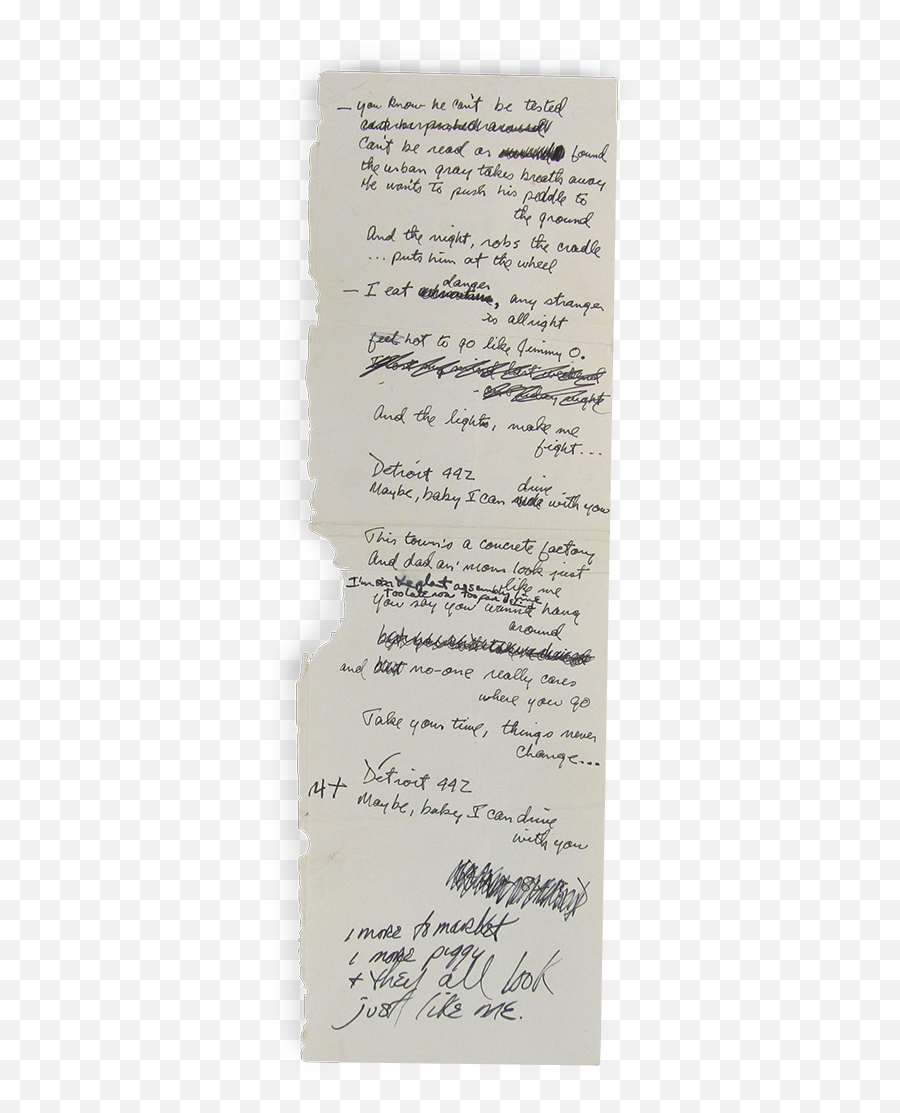 — you know he can't be tested
can't be read or found
the urban gray takes breath away
He wants to push his peddle to
the ground
And the night, robs the cradle
... puts him at the wheel
danger
— I eat , any stranger
is allright
feel hot to go like Jimmy O.
And the lights, make me
fight...
Detroit 442
drive
Maybe, baby I can ride with you
This town's a concrete factory
And dad an' mom look just
like me
I'm assembly
too late now too far
you say you wanna hang
around
and but no-one really cares
where you go
Take your time, things never
change...
Detroit 442
4X
Maybe, baby I can drive
with you
1 more to market
1 more piggy
+ they all look
just like me.